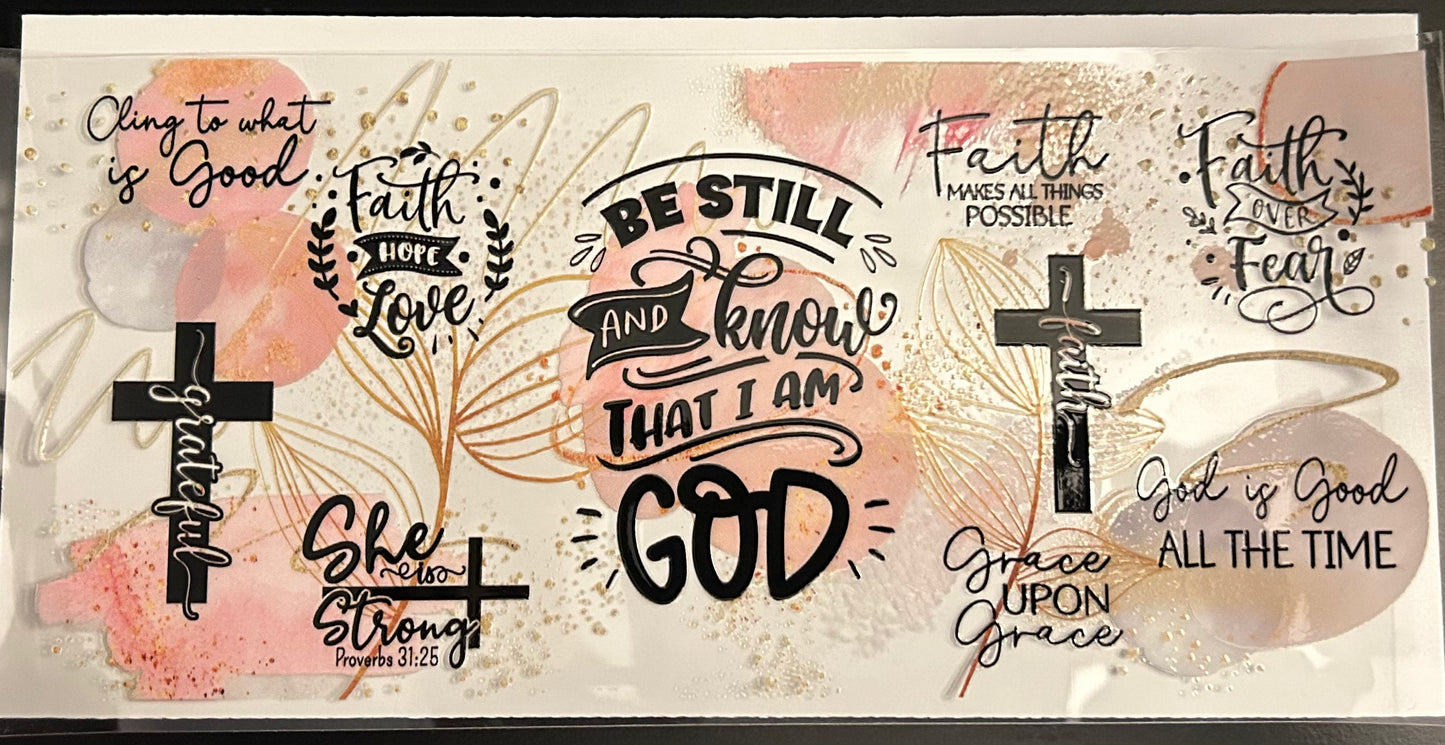 Cling to what
is Good
Faith
HOPE
Love
grateful
She
is
Strong
Proverbs 31:25
BE STILL
AND know
THAT I AM
GOD
Faith
MAKES ALL THINGS
POSSIBLE
Faith
OVER
Fear
faith
God is Good
ALL THE TIME
Grace
UPON
Grace